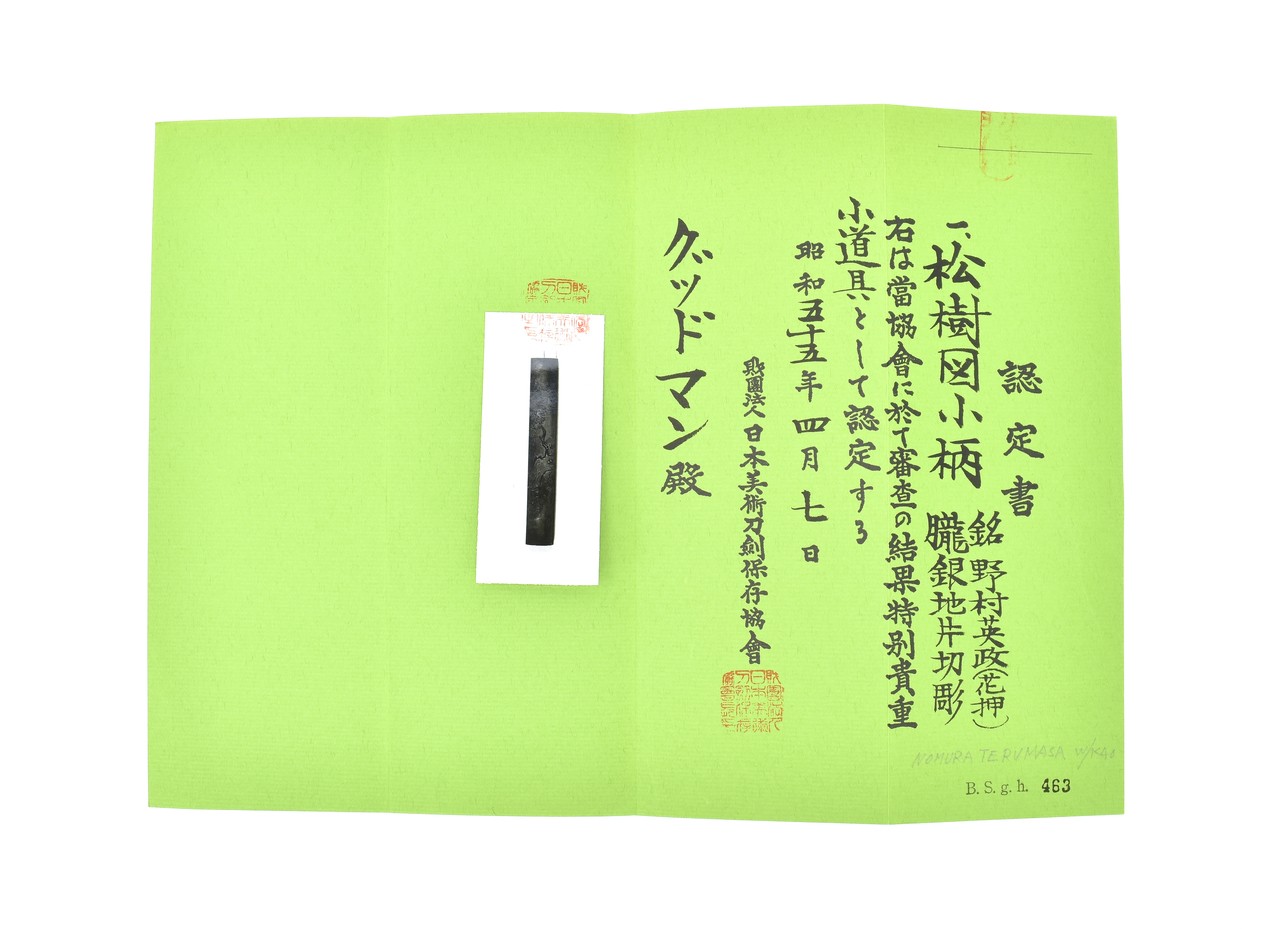 認定書
一、松樹図小柄
銘 野村英政(花押)
朧銀地片切彫
右は當協會に於て審査の結果特別貴重
小道具として認定する
昭和五十五年四月七日
財團法人日本美術刀劍保存協會
グッドマン殿
NOMURA TERUMASA w/KAO
B. S. g. h. 463